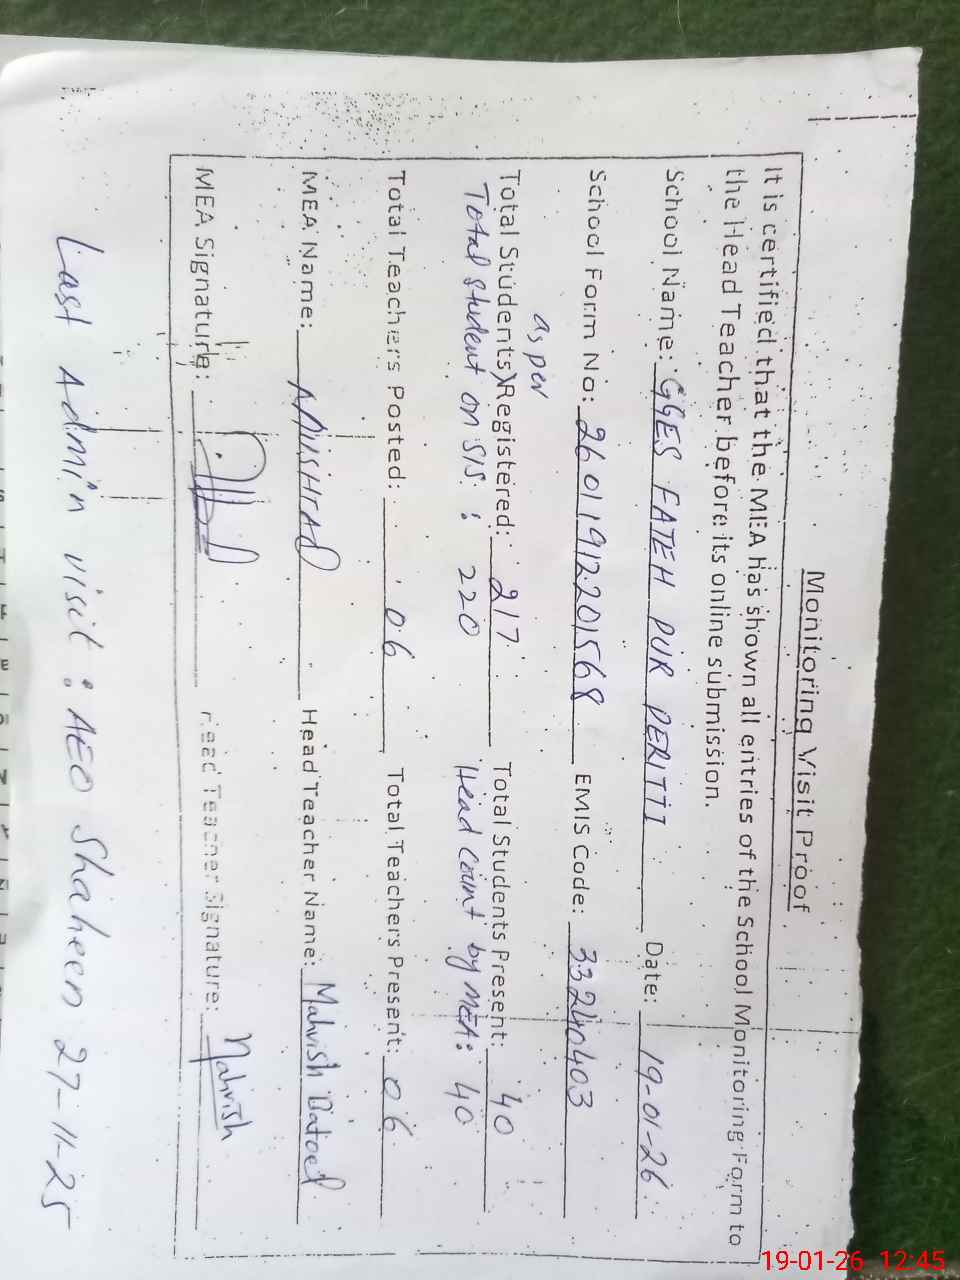 Monitoring Visit Proof
It is certified that the MEA has shown all entries of the School Monitoring Form to
the Head Teacher before its online submission.
School Name: GGES FATEH PUR PERITTI Date: 19-01-26
School Form No: 26011912201568 EMIS Code: 33240403
as per
Total Students Registered: 217 Total Students Present: 40
Total student on SIS: 220 Head Count by MEA: 40
Total Teachers Posted: 06 Total Teachers Present: 06
MEA Name: Head Teacher Name: Mahvish
MEA Signature: Head Teacher Signature: Mahvish
Last Admin visit: AEO Shaheen 27-11-25
19-01-26 12:45